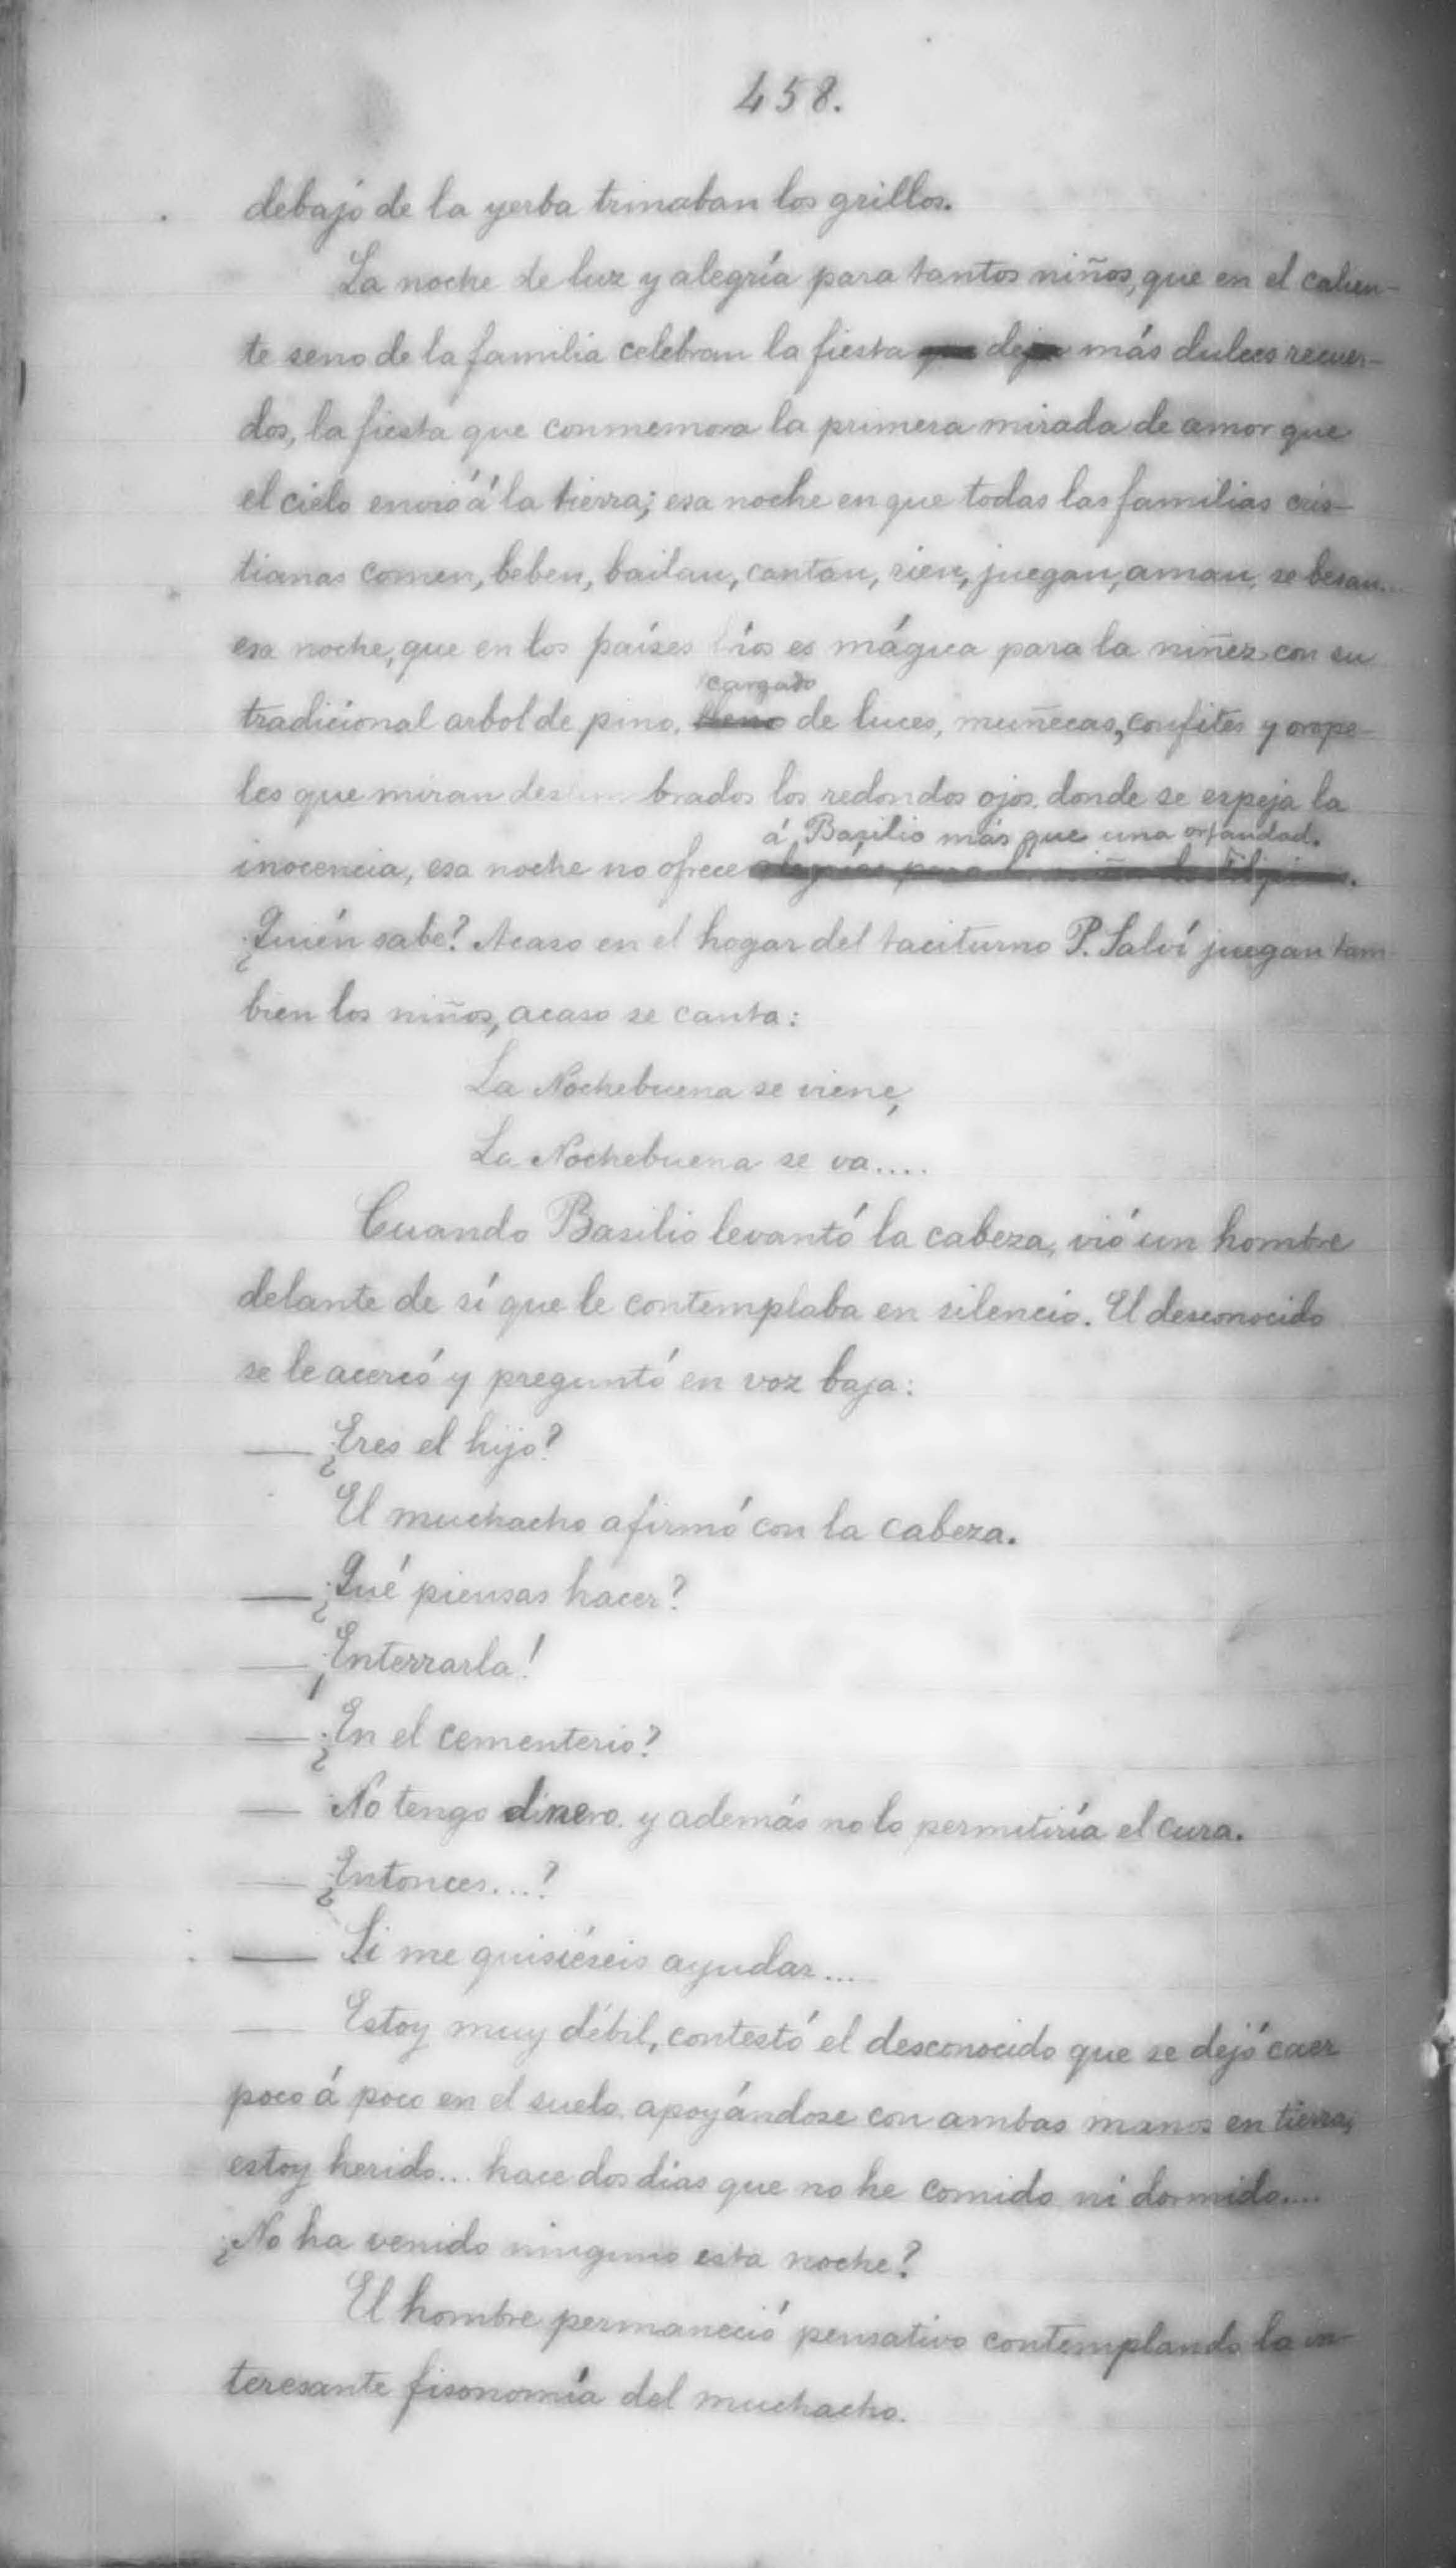 458.
debajo de la yerba trinaban los grillos.
La noche de luz y alegría para tantos niños, que en el calien-
te seno de la familia celebran la fiesta de más dulces recuer-
dos, la fiesta que conmemora la primera mirada de amor que
el cielo envió á la tierra; esa noche en que todas las familias cris-
tianas comen, beben, bailan, cantan, rien, juegan, aman, se besan...
esa noche, que en los países fríos es mágica para la niñez con su
cargado
tradicional arbol de pino, lleno de luces, muñecas, confites y orope-
les que miran deslumbrados los redondos ojos donde se espeja la
á Basilio más que una orfandad.
inocencia, esa noche no ofrece
¿Quién sabe? Acaso en el hogar del taciturno P. Salví juegan tam-
bien los niños, acaso se canta:
La Nochebuena se viene,
La Nochebuena se va....
Cuando Basilio levantó la cabeza, vió un hombre
delante de sí que le contemplaba en silencio. El desconocido
se le acercó y preguntó en voz baja:
— ¿Eres el hijo?
El muchacho afirmó con la cabeza.
— ¿Qué piensas hacer?
— ¡Enterrarla!
— ¿En el cementerio?
— No tengo dinero y además no lo permitiría el cura.
— ¿Entonces...?
— Si me quisiéseis ayudar...
— Estoy muy débil, contestó el desconocido que se dejó caer
poco á poco en el suelo apoyándose con ambas manos en tierra;
estoy herido... hace dos dias que no he comido ni dormido....
¿No ha venido ninguno esta noche?
El hombre permaneció pensativo contemplando la in-
teresante fisonomía del muchacho.